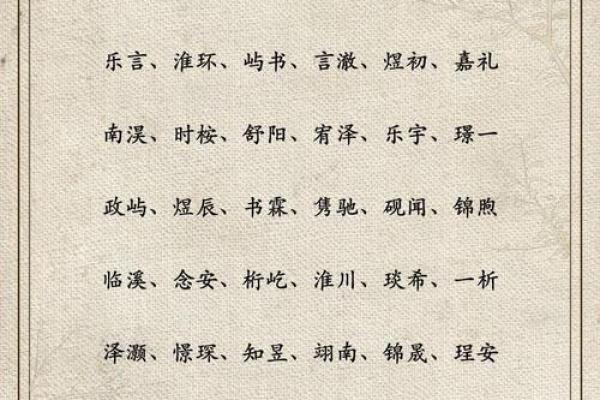 乐言、淮环、屿书、言澈、煜初、嘉礼
南淏、时桉、舒阳、宥泽、乐宇、璟一
政屿、煜辰、书霖、隽驰、砚闻、锦煦
临溪、念安、桁屹、淮川、琰希、一析
泽灏、憬琛、知昱、翊南、锦晟、珵安